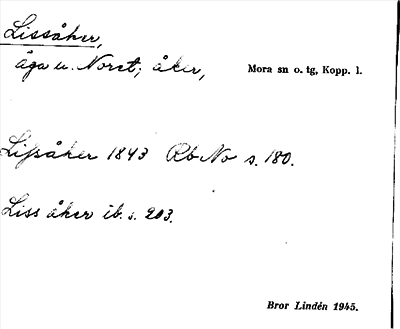 Lissåker,
äga u. Noret; åker, Mora sn o. tg, Kopp. l.
Lissåker 1843 Rb No s. 180.
Liss åker ib. s. 203.
Bror Lindén 1945.